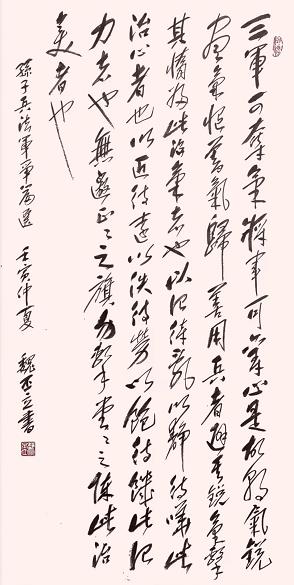 三軍可奪氣將軍可奪心是故朝氣銳
晝氣惰暮氣歸善用兵者避其銳氣擊
其惰歸此治氣者也以治待亂以靜待嘩此
治心者也以近待遠以佚待勞以飽待饑此治
力者也無邀正々之旗勿擊堂々之陳此治
變者也
孫子兵法軍爭篇選 壬寅仲夏 魏立書